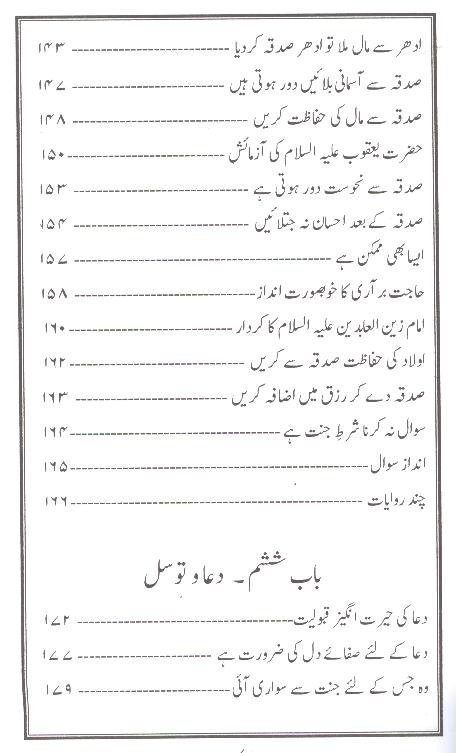 ادھر سے مال ملا تو ادھر صدقہ کر دیا --------------------------- ۱۴۳
صدقہ سے آسمانی بلائیں دور ہوتی ہیں --------------------------- ۱۴۷
صدقہ سے مال کی حفاظت کریں --------------------------- ۱۴۸
حضرت یعقوب علیہ السلام کی آزمائش --------------------------- ۱۵۰
صدقہ سے نحوست دور ہوتی ہے --------------------------- ۱۵۳
صدقہ کے بعد احسان نہ جتلائیں --------------------------- ۱۵۴
ایسا بھی ممکن ہے --------------------------- ۱۵۷
حاجت بر آری کا خوبصورت انداز --------------------------- ۱۵۸
امام زین العابدین علیہ السلام کا کردار --------------------------- ۱۶۰
اولاد کی حفاظت صدقہ سے کریں --------------------------- ۱۶۲
صدقہ دے کر رزق میں اضافہ کریں --------------------------- ۱۶۳
سوال نہ کرنا شرطِ جنت ہے --------------------------- ۱۶۴
انداز سوال --------------------------- ۱۶۵
چند روایات --------------------------- ۱۶۶
باب ششم ۔ دعا و توسل
دعا کی حیرت انگیز قبولیت --------------------------- ۱۷۲
دعا کے لئے صفائے دل کی ضرورت ہے --------------------------- ۱۷۷
وہ جس کے لئے جنت سے سواری آئی --------------------------- ۱۷۹